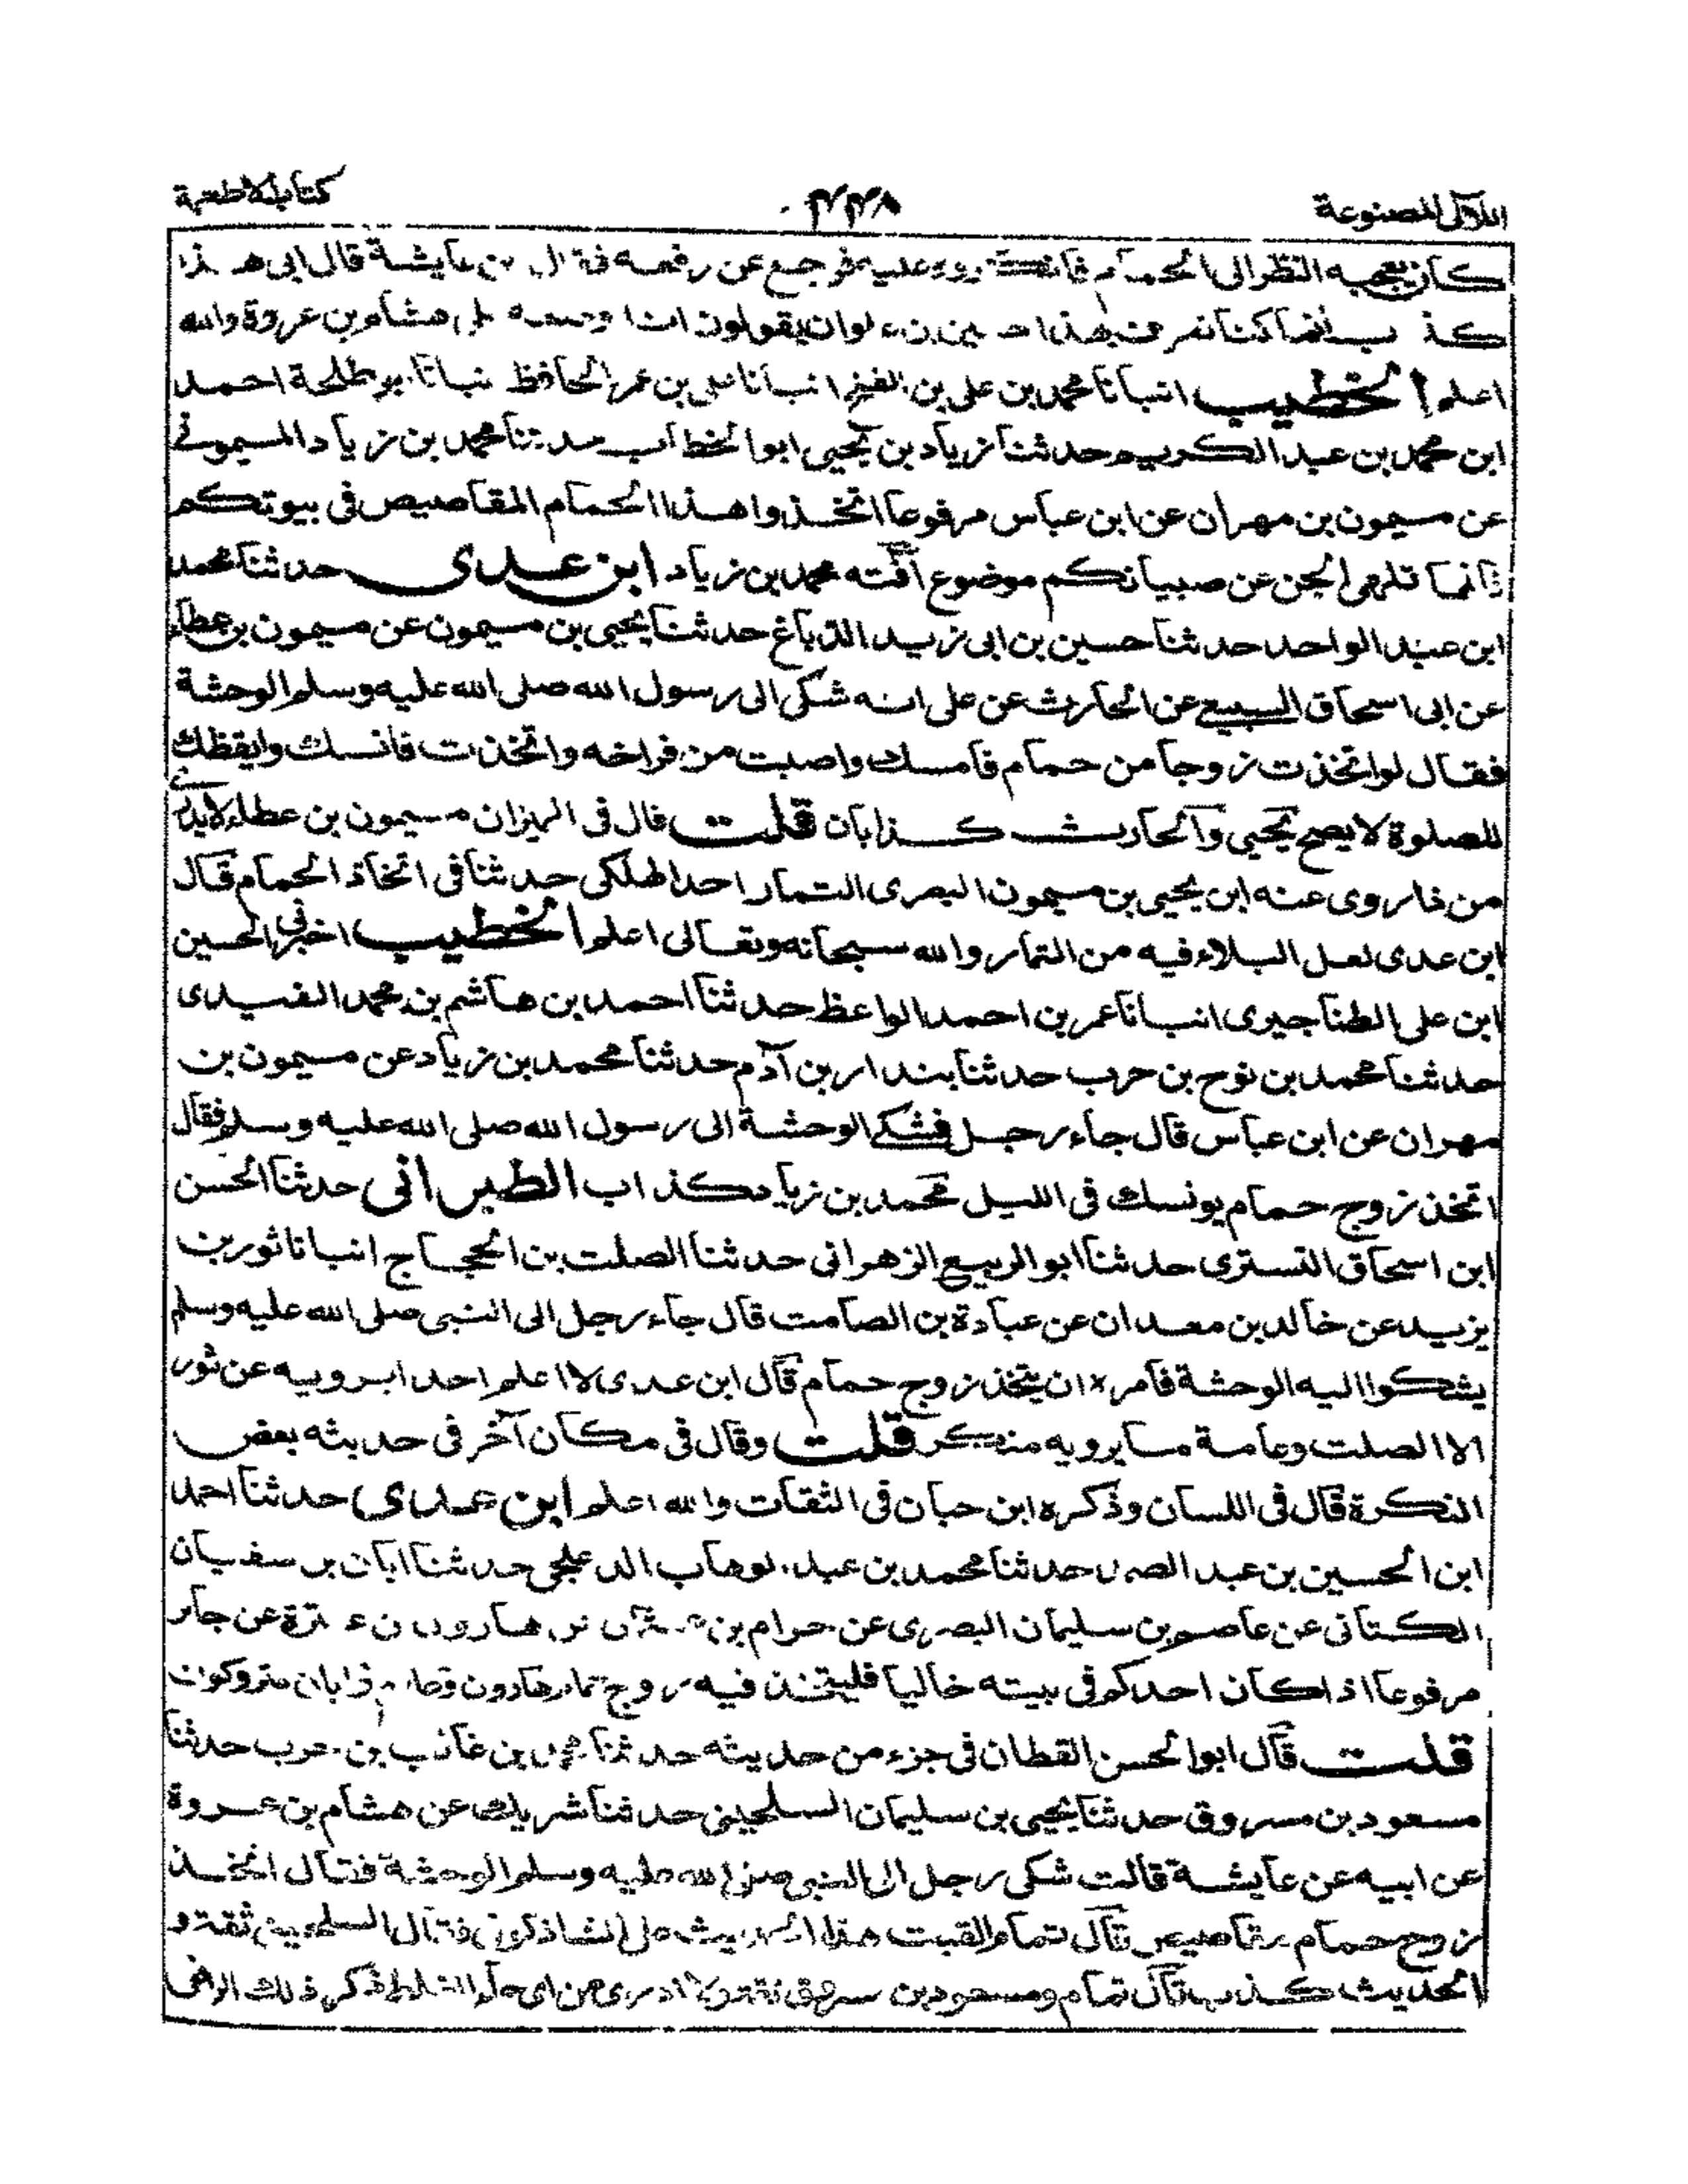 اللآلی المصنوعة
۴۴۸
کتاب الاطعمة
کان یعجبه النظر الی الحمام علیه فرجع عن رفعه عایشة قال ابی هذا
کذب انما کنا نعرف بهذا یقولون هشام بن عروة والله
اعلم الخطیب انبانا محمد بن علی بن الفتح انبانا علی بن عمر الحافظ انبانا ابو طلحة احمد
ابن محمد بن عبد الکریم حدثنا زیاد بن یحیی ابو الخطاب حدثنا محمد بن زیاد المیمونی
عن میمون بن مهران عن ابن عباس مرفوعا اتخذوا هذا الحمام المقاصیص فی بیوتکم
فانما تلهی الجن عن صبیانکم موضوع آفته محمد بن زیاد ابن عدی حدثنا محمد
ابن عبد الواحد حدثنا حسین بن ابی زید الدباغ حدثنا یحیی بن میمون عن میمون بن عطاء
عن ابی اسحاق السبیعی عن الحارث عن علی انه شکی الی رسول الله صلی الله علیه وسلم الوحشة
فقال لو اتخذت زوجا من حمام فآمسك واصبت من فراخه واتخذت فآنسك وایقظك
للصلوة لا یصح یحیی والحارث کذابان قلت قال فی المیزان میمون بن عطاء لا یدری
من ذا روی عنه ابن یحیی بن میمون البصری التمار احد الهلکی حدثنا فی اتخاذ الحمام قال
ابن عدی لعل البلاء فیه من التمار والله سبحانه وتعالی اعلم الخطیب اخبرنی الحسین
ابن علی الطناجیری انبانا عمر بن احمد الواعظ حدثنا احمد بن هاشم بن محمد الفیدی
حدثنا محمد بن نوح بن حرب حدثنا بندار بن آدم حدثنا محمد بن زیاد عن میمون بن
مهران عن ابن عباس قال جاء رجل فشکی الوحشة الی رسول الله صلی الله علیه وسلم فقال
اتخذ زوج حمام یونسك فی اللیل محمد بن زیاد کذاب الطبرانی حدثنا الحسن
ابن اسحاق التستری حدثنا ابو الربیع الزهرانی حدثنا الصلت بن الحجاج انبانا ثور بن
یزید عن خالد بن معدان عن عبادة بن الصامت قال جاء رجل الی النبی صلی الله علیه وسلم
یشکوا الیه الوحشة فامره ان یتخذ زوج حمام قال ابن عدی لا اعلم احدا یرویه عن ثور
الا الصلت وعامة ما یرویه منکر قلت وقال فی مکان آخر فی حدیثه بعض
النکرة قال فی اللسان وذکره ابن حبان فی الثقات والله اعلم ابن عدی حدثنا احمد
ابن الحسین بن عبد الصمد حدثنا محمد بن عبد الوهاب الدعلجی حدثنا ابان بن سفیان
الکتانی عن عاصم بن سلیمان البصری عن حرام بن هارون عن جابر
مرفوعا اذا کان احدکم فی بیته خالیا فلیتخذ فیه زوج حمام هارون وابان متروکون
قلت قال ابو الحسن القطان فی جزء من حدیثه حدثنا بن غالب بن حرب حدثنا
مسعود بن مسروق حدثنا یحیی بن سلیمان السلحینی حدثنا شریك عن هشام بن عروة
عن ابیه عن عایشة قالت شکی رجل الی النبی صلی الله علیه وسلم الوحشة فقال اتخذ
زوج حمام مقاصیص قال تمام لقیت هذا الحدیث علی الشاذکونی فقال السلحینی ثقة و
الحدیث کذب قال تمام ومسعود بن مسروق ثقة ولا ادری من ای الغلط ذکر ذلك